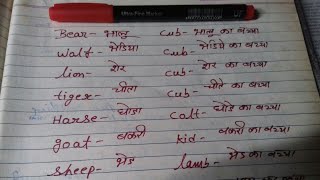 Bear - भालू Cub - भालू का बच्चा
Walf - भेडिया Cub - भेडिये का बच्चा
lion - शेर Cub - शेर का बच्चा
tiger - चीता Cub - चीते का बच्चा
Horse - घोडा Calt - घोडे का बच्चा
goat - बकरी kid - बकरी का बच्चा
sheep - भेड lamb - भेड का बच्चा